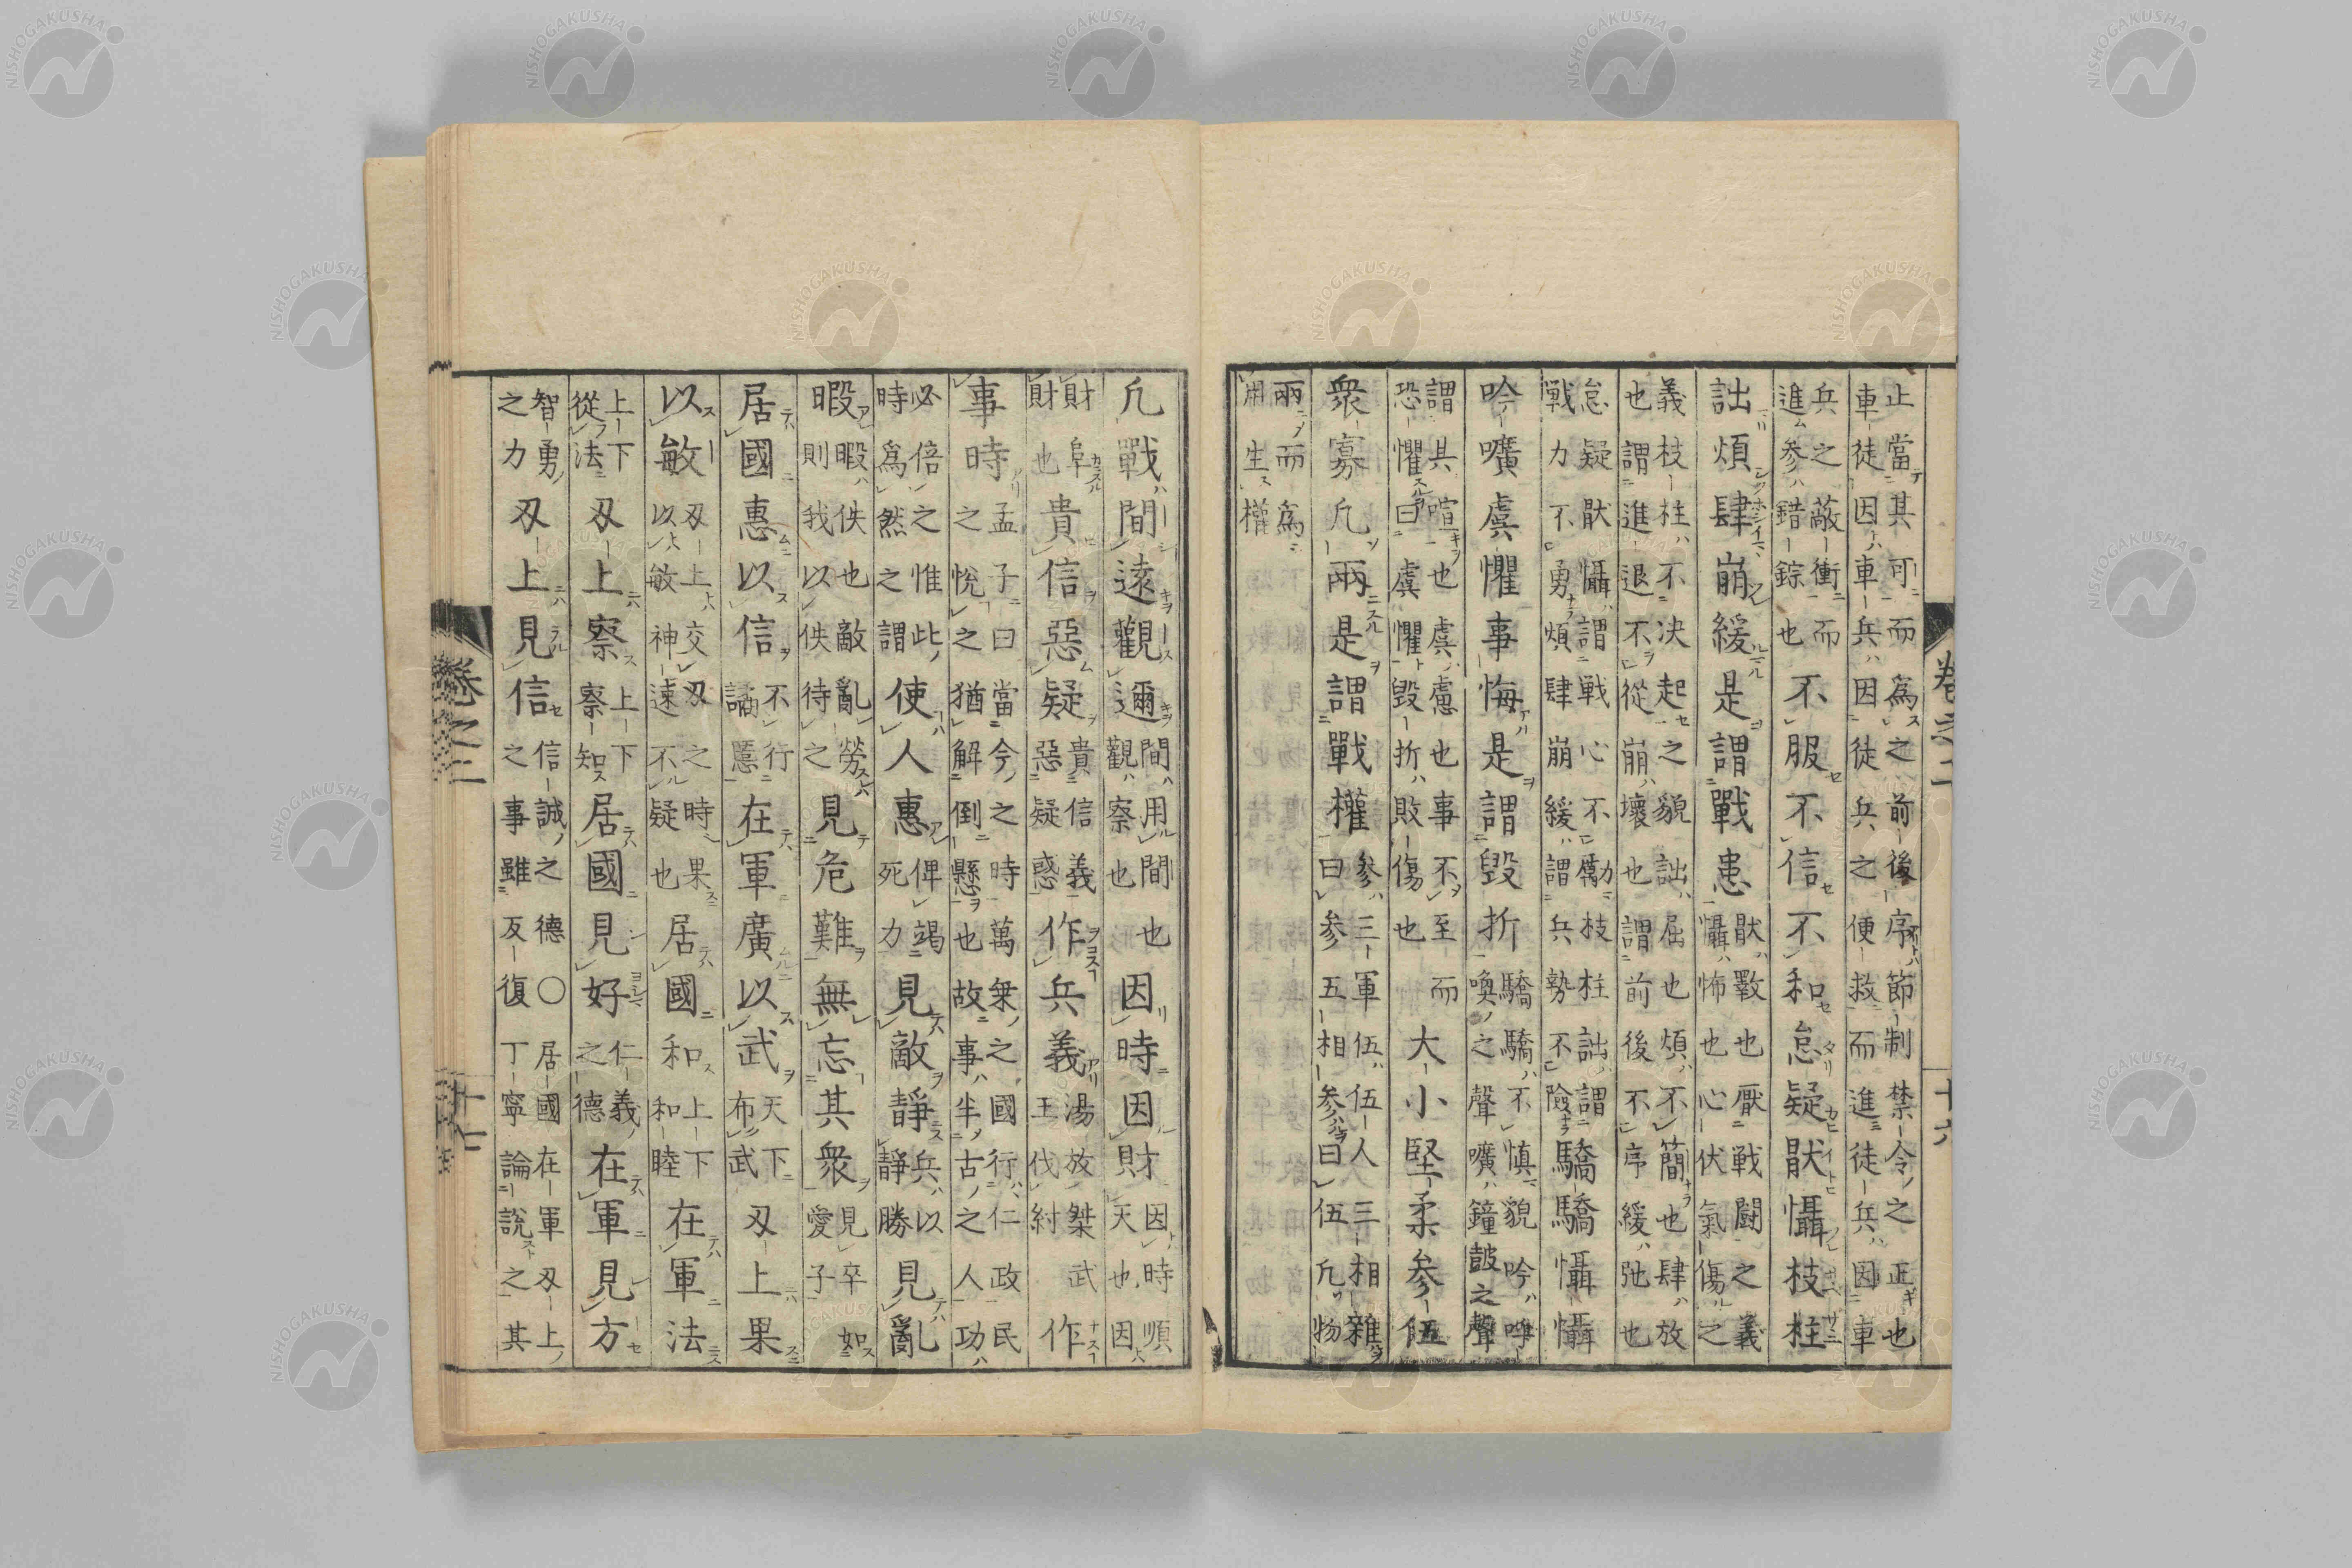 止當其可而爲之前後序節制禁令之正也
車徒因車兵因徒兵之便救而進徒兵因車
兵之敵衝而進参錯綜也不服不信不和怠疑厭懾枝柱
詘煩肆崩緩是謂戰患厭斁也厭戦闘之義懾怖也心伏氣傷之
義枝柱不决起之貌詘屈也煩不簡也肆放
也謂進退不從崩壞也謂前後不序緩弛也
怠疑厭懾謂戦心不勵枝柱詘謂戦力不勇煩肆崩緩謂兵勢不險驕驕懾懾
吟嚝虞懼事悔是謂毀折驕驕不慎貌吟呻喚之聲嚝鐘鼓之聲
謂其喧也虞慮也事不至而恐懼曰虞懼毀折敗傷也大小堅柔参伍
衆寡凡兩是謂戰權参三軍伍伍人三相雜曰参五相参曰伍凡物
兩而爲用生權
巻之二 十六
凡戰間遠觀邇間用間也觀察也因時因財因時順天也因
財阜財也貴信惡疑貴信義惡疑惑作兵義湯放桀武王伐紂作
事時孟子曰當今之時萬乗之國行仁政民之悅之猶解倒懸也故事半古之人功
必倍之惟此時爲然之謂使人惠俾竭死力見敵靜兵以靜勝見亂
暇暇佚也敵亂勞則我以佚待之見危難無忘其衆見卒如愛子
居國惠以信不行譎慝在軍廣以武天下布武刃上果
以敏刃上交刃之時果以敏神速不疑也居國和上下和睦在軍法
上下從法刃上察上下察知居國見好仁義之德在軍見方
智勇之力刃上見信信誠之德○居國在軍刃上之事雖反復丁寧論說之其
巻之二 十七